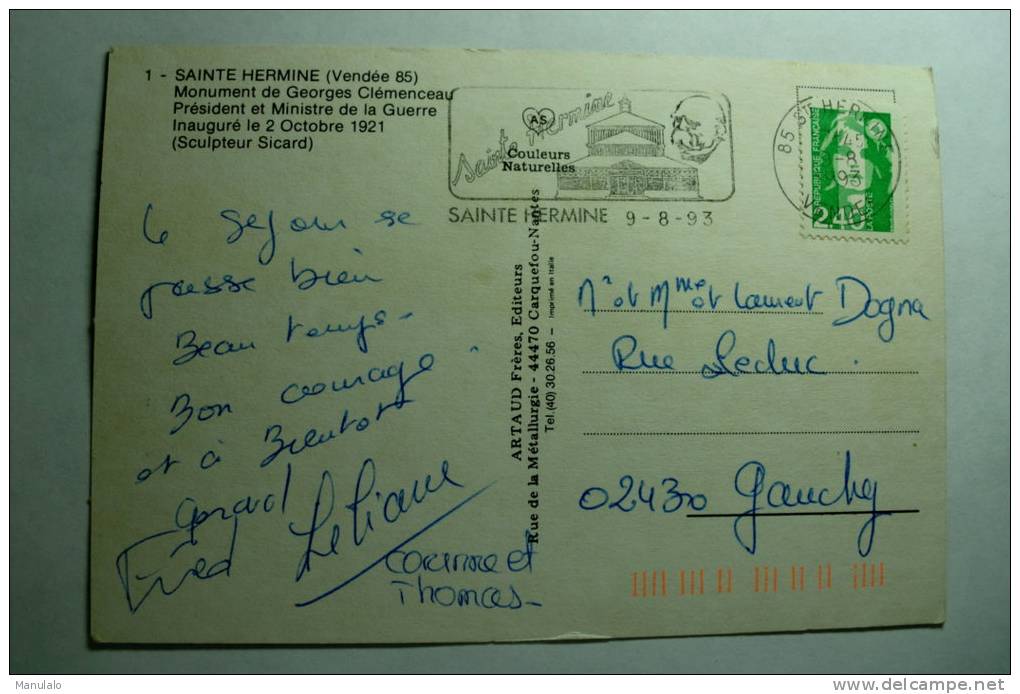 1 - SAINTE HERMINE (Vendée 85)
Monument de Georges Clémenceau
Président et Ministre de la Guerre
Inauguré le 2 Octobre 1921
(Sculpteur Sicard)
AS
Couleurs
Naturelles
Sainte Hermine
SAINTE HERMINE 9-8-93
85 STE HERMINE
VENDEE
REPUBLIQUE FRANÇAISE
2,40
LA POSTE
Le séjour se
passe bien
Beau temps -
Bon courage
et à Bientôt
Gérard
Fred Liliane
Corinne et
Thomas -
ARTAUD Frères, Editeurs
Rue de la Métallurgie - 44470 Carquefou-Nantes
Tel. (40) 30.26.56 - Imprimé en Italie
Mr et Mme et Laurent Dogna
Rue Leduc.
02430 Gauchy
Manulalo
delcampe.net